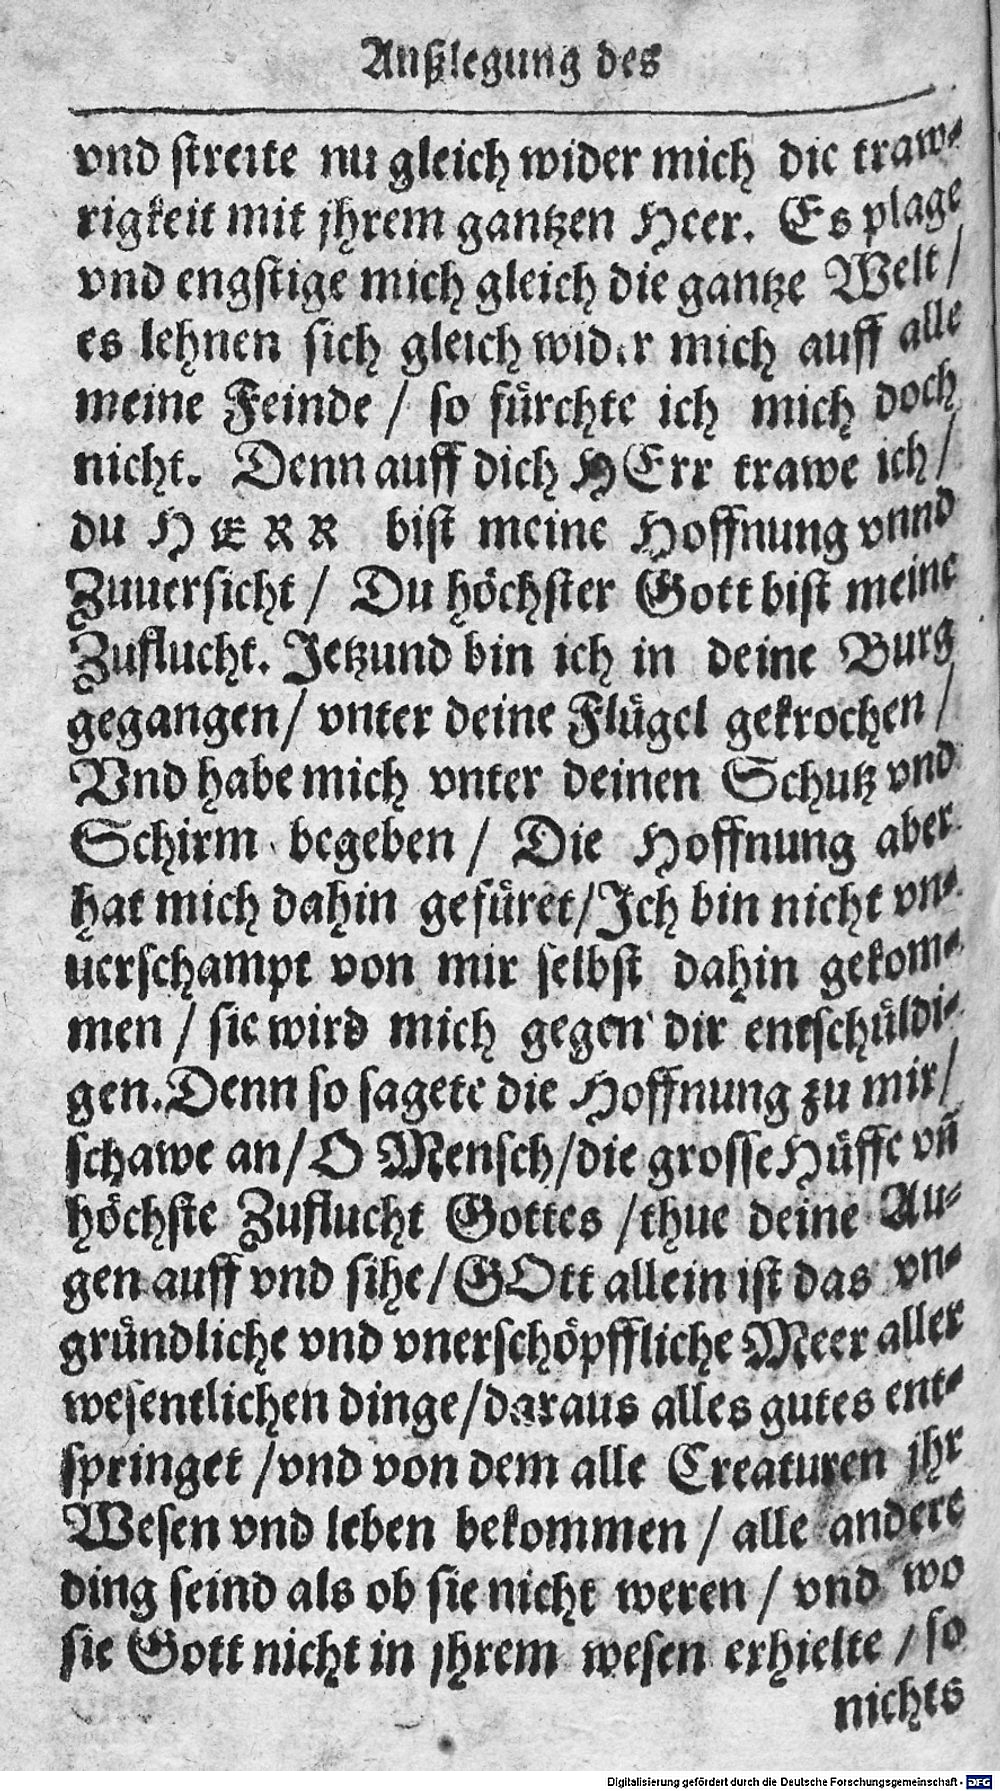 Außlegung des
vnd streite nu gleich wider mich die traw-
rigkeit mit jhrem gantzen Heer. Es plage
vnd engstige mich gleich die gantze Welt/
es lehnen sich gleich wider mich auff alle
meine Feinde / so fürchte ich mich doch
nicht. Denn auff dich HErr trawe ich/
du HERR bist meine Hoffnung vnnd
Zuuersicht / Du höchster Gott bist meine
Zuflucht. Jetzund bin ich in deine Burg
gegangen/ vnter deine Flügel gekrochen /
Vnd habe mich vnter deinen Schutz vnd
Schirm begeben / Die Hoffnung aber
hat mich dahin gefüret/Ich bin nicht vn-
uerschampt von mir selbst dahin gekom-
men / sie wird mich gegen dir entschüldi-
gen. Denn so sagete die Hoffnung zu mir/
schawe an/O Mensch/die grosse Hüffe vñ
höchste Zuflucht Gottes /thue deine Au-
gen auff vnd sihe/GOtt allein ist das vn-
gründliche vnd vnerschöpffliche Meer aller
wesentlichen dinge/daraus alles gutes ent-
springet /vnd von dem alle Creaturen jhr
Wesen vnd leben bekommen / alle andere
ding seind als ob sie nicht weren / vnd wo
sie Gott nicht in jhrem wesen erhielte /so
nichts
Digitalisierung gefördert durch die Deutsche Forschungsgemeinschaft - DFG